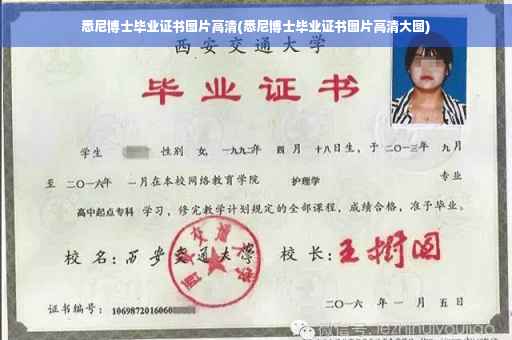 悉尼博士毕业证书图片高清(悉尼博士毕业证书图片高清大图)
西安交通大学
毕业证书
学生 性别 女, 一九九二年 四月 十八日生, 于二〇一三年 九月
至 二〇一六年 一月在本校网络教育学院 护理学 专业
高中起点专科 学习, 修完教学计划规定的全部课程, 成绩合格, 准予毕业。
校名: 西安交通大学 校长: 王树国
西安交通大学
证书编号: 1069872016060
二〇一六年 一月 五日
微信号: jezhihuiyoujiao